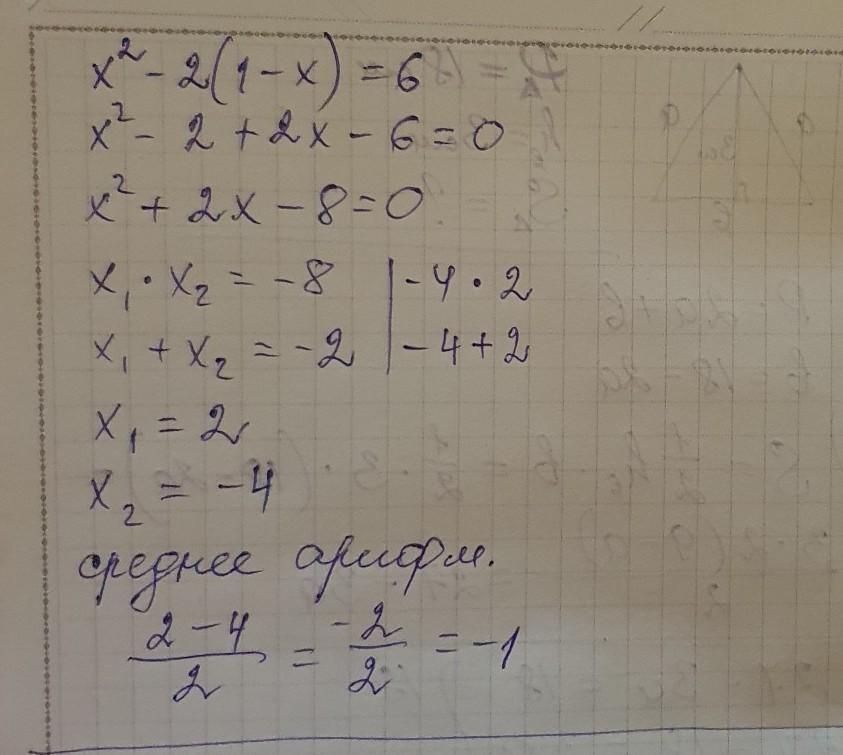 x² - 2(1 - x) = 6
x² - 2 + 2x - 6 = 0
x² + 2x - 8 = 0
x₁ · x₂ = -8 | -4 · 2
x₁ + x₂ = -2 | -4 + 2
x₁ = 2
x₂ = -4
среднее арифм.
(2 - 4)/2 = -2/2 = -1